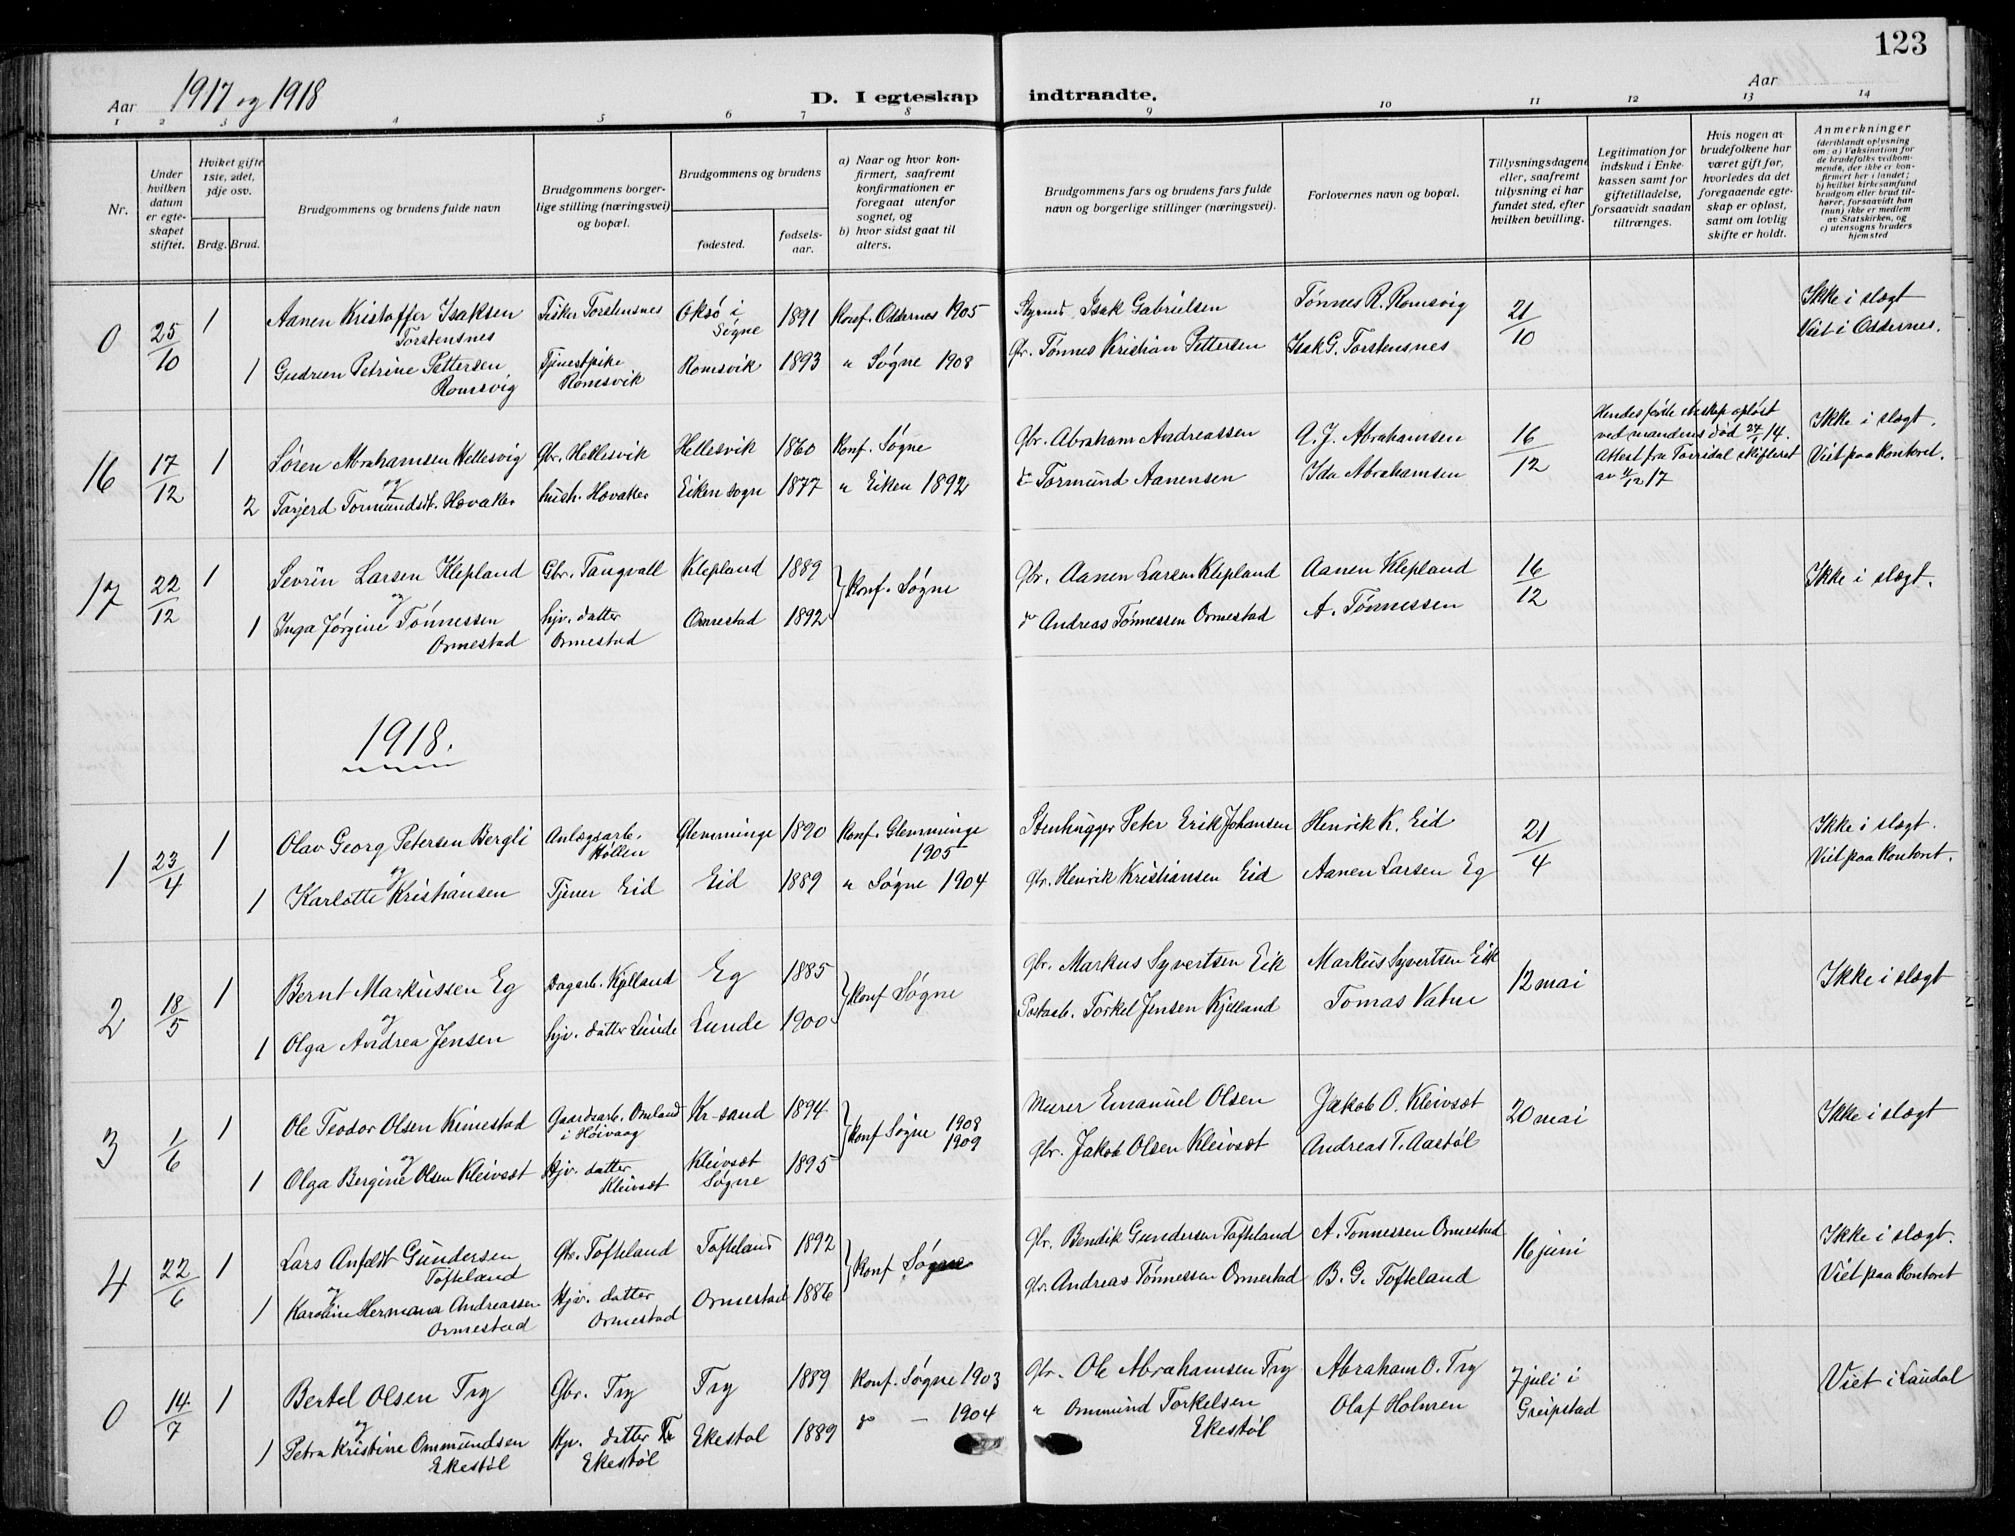 123
Aar 1917 og 1918
D. I egteskap indtraadte.
Aar
1 2 3 4 5 6 7 8 9 10 11 12 13 14
Nr.
Under hvilken datum er egteskapet stiftet.
Hviket gifte 1ste, 2det, 3dje osv.
Brdg. Brud.
Brudgommens og brudens fulde navn
Brudgommens borgerlige stilling (næringsvei) og bopæl.
Brudgommens og brudens
fødested.
fødselsaar.
a) Naar og hvor konfirmert, saafremt konfirmationen er foregaat utenfor sognet, og
b) hvor sidst gaat til alters.
Brudgommens fars og brudens fars fulde navn og borgerlige stillinger (næringsvei).
Forlovernes navn og bopæl.
Tillysningsdagene eller, saafremt tillysning ei har fundet sted, efter hvilken bevilling.
Legitimation for indskud i Enkekassen samt for giftetilladelse, forsaavidt saadan tiltrænges.
Hvis nogen av brudefolkene har været gift før, hvorledes da det foregaaende egteskap er opløst, samt om lovlig skifte er holdt.
Anmerkninger (deriblandt oplysning om: a) Vaksination for de brudefolks vedkommende, der ikke er konfirmert her i landet; b) hvilket kirkesamfund brudgom eller brud tilhører, forsaavidt han (hun) ikke er medlem av Statskirken, og c) utensogns bruders hjemsted
0 25/10 1 Aanen Kristoffer Isaksen Torstensnes Fisker Torstensnes Oksø i Søgne 1891 Konf. Oddernes 1905 Styrmd. Isak Gabrielsen Tønnes R. Romsvig 21/10 Ikke i slægt Viet i Oddernes.
1 Gudrun Petrine Pettersen Romsvig Tjenestpike Romsvik Romsvik 1893 " Søgne 1908 Gbr. Tønnes Kristian Pettersen Isak G. Torstensnes
16 17/12 1 Søren Abrahamsen Hellesvig Gbr. Hellesvik Hellesvik 1860 Konf. Søgne Gbr. Abraham Andreassen A. J. Abrahamsen 16/12 Hendes første ekteskap opløst ved mandens død 27/1 14. Attest fra Torridal skifteret av 4/12 17 Ikke i slægt. Viet paa kontoret.
og
2 Tarjerd Tormundsdt. Hovaker hush. Hovaker Eiken sogn 1877 " Eiken 1892 do Tormund Aanensen Ida Abrahamsen
17 22/12 1 Sevrin Larsen Klepland Gbr. Tangvall Klepland 1889 Konf. Søgne Gbr. Aanen Larsen Klepland Aanen Klepland 16/12 Ikke i slægt.
og
1 Inga Jørgine Tønnessen Ormestad hjv. datter Ormestad Ormestad 1892 do Andreas Tønnessen Ormestad A. Tønnessen
1918.
1 23/4 1 Olav Georg Petersen Bergli Anlægsarb. Høllen Glemminge 1890 Konf. Glemminge 1905 Stenhugger Peter Erik Johansen Henrik K. Eid 21/4 Ikke i slægt. Viet paa kontoret.
og
1 Karlotte Kristiansen Tjener Eid Eid 1889 " Søgne 1904 Gbr. Henrik Kristiansen Eid Aanen Larsen Eg
2 18/5 1 Bernt Markussen Eg Dagarb. Kjelland Eg 1885 Konf Søgne Gbr. Markus Syvertsen Eik Markus Syvertsen Eik 12 mai Ikke i slægt
og
1 Olga Andrea Jensen hjv. datter Lunde Lunde 1900 Postaab. Torkel Jensen Kjelland Tomas Vatne
3 1/6 1 Ole Teodor Olsen Kimestad Gaardsarb. Omland i Høivaag Kr-sand 1894 Konf Søgne 1908 1909 Murer Emanuel Olsen Jakob O. Kleivset 20 mai Ikke i slægt
og
1 Olga Bergine Olsen Kleivset Hjv. datter Kleivset Kleivset Søgne 1895 Gbr. Jakob Olsen Kleivset Andreas T. Aastøl
4 22/6 1 Lars Anfelt Gundersen Tofteland Gbr. Tofteland Tofteland 1892 Konf Søgne Gbr. Bendik Gundersen Tofteland A. Tønnessen Ormestad 16 juni Ikke i slægt. Viet paa kontoret
og
1 Karoline Hermana Andreassen Ormestad Hjv. datter Ormestad Ormestad 1886 Gbr. Andreas Tønnessen Ormestad B. G. Tofteland
0 14/7 1 Bertel Olsen Try Gbr. Try Try 1889 Konf. Søgne 1903 Gbr. Ole Abrahamsen Try Abraham O. Try 7 juli i Greipstad Viet i Laudal
og
1 Petra Kristine Ommundsen Ekestøl Hjv. datter Ekestøl Ekestøl 1889 do — 1904 " Ommund Torkelsen Ekestøl Olaf Holmen